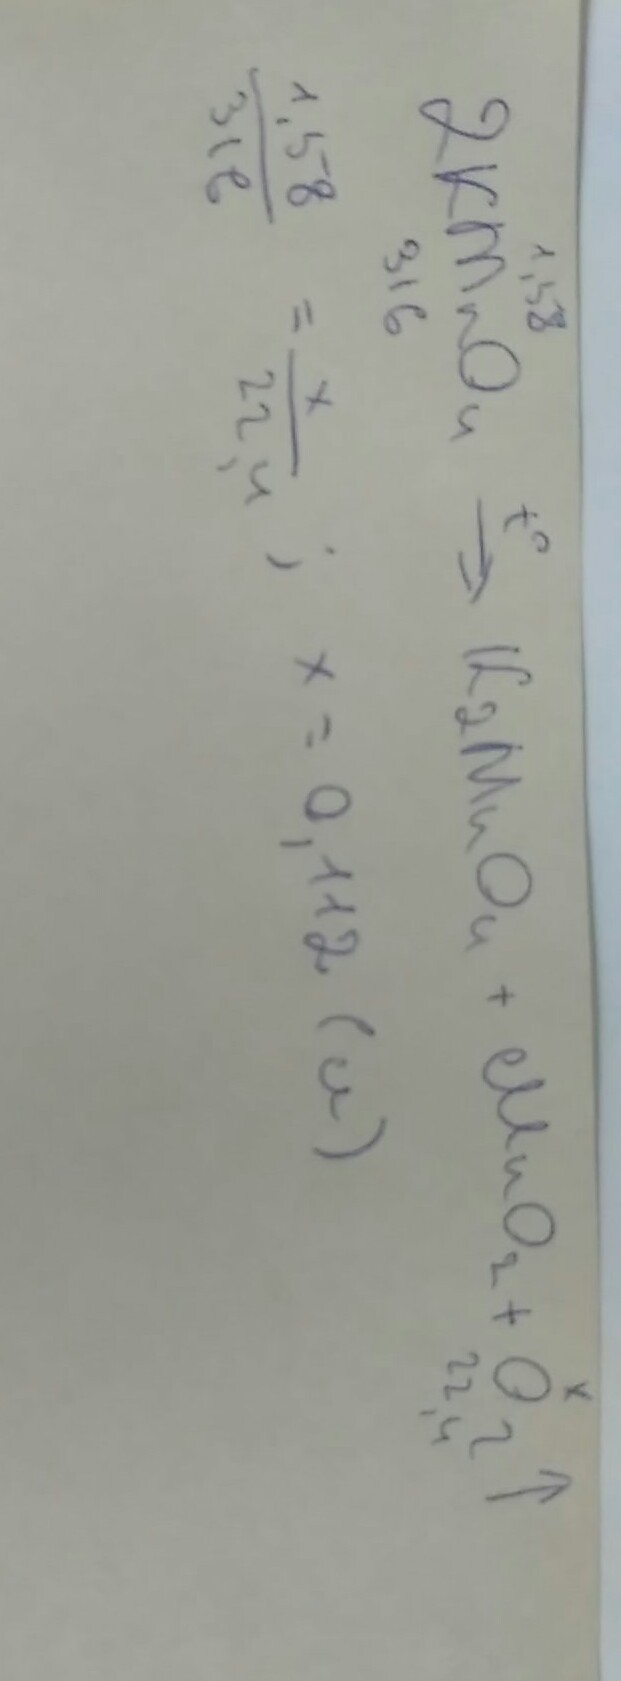 1,58 x
2KMnO₄ →t° K₂MnO₄ + MnO₂ + O₂↑
316 22,4
1,58/316 = x/22,4 ; x = 0,112 (л)